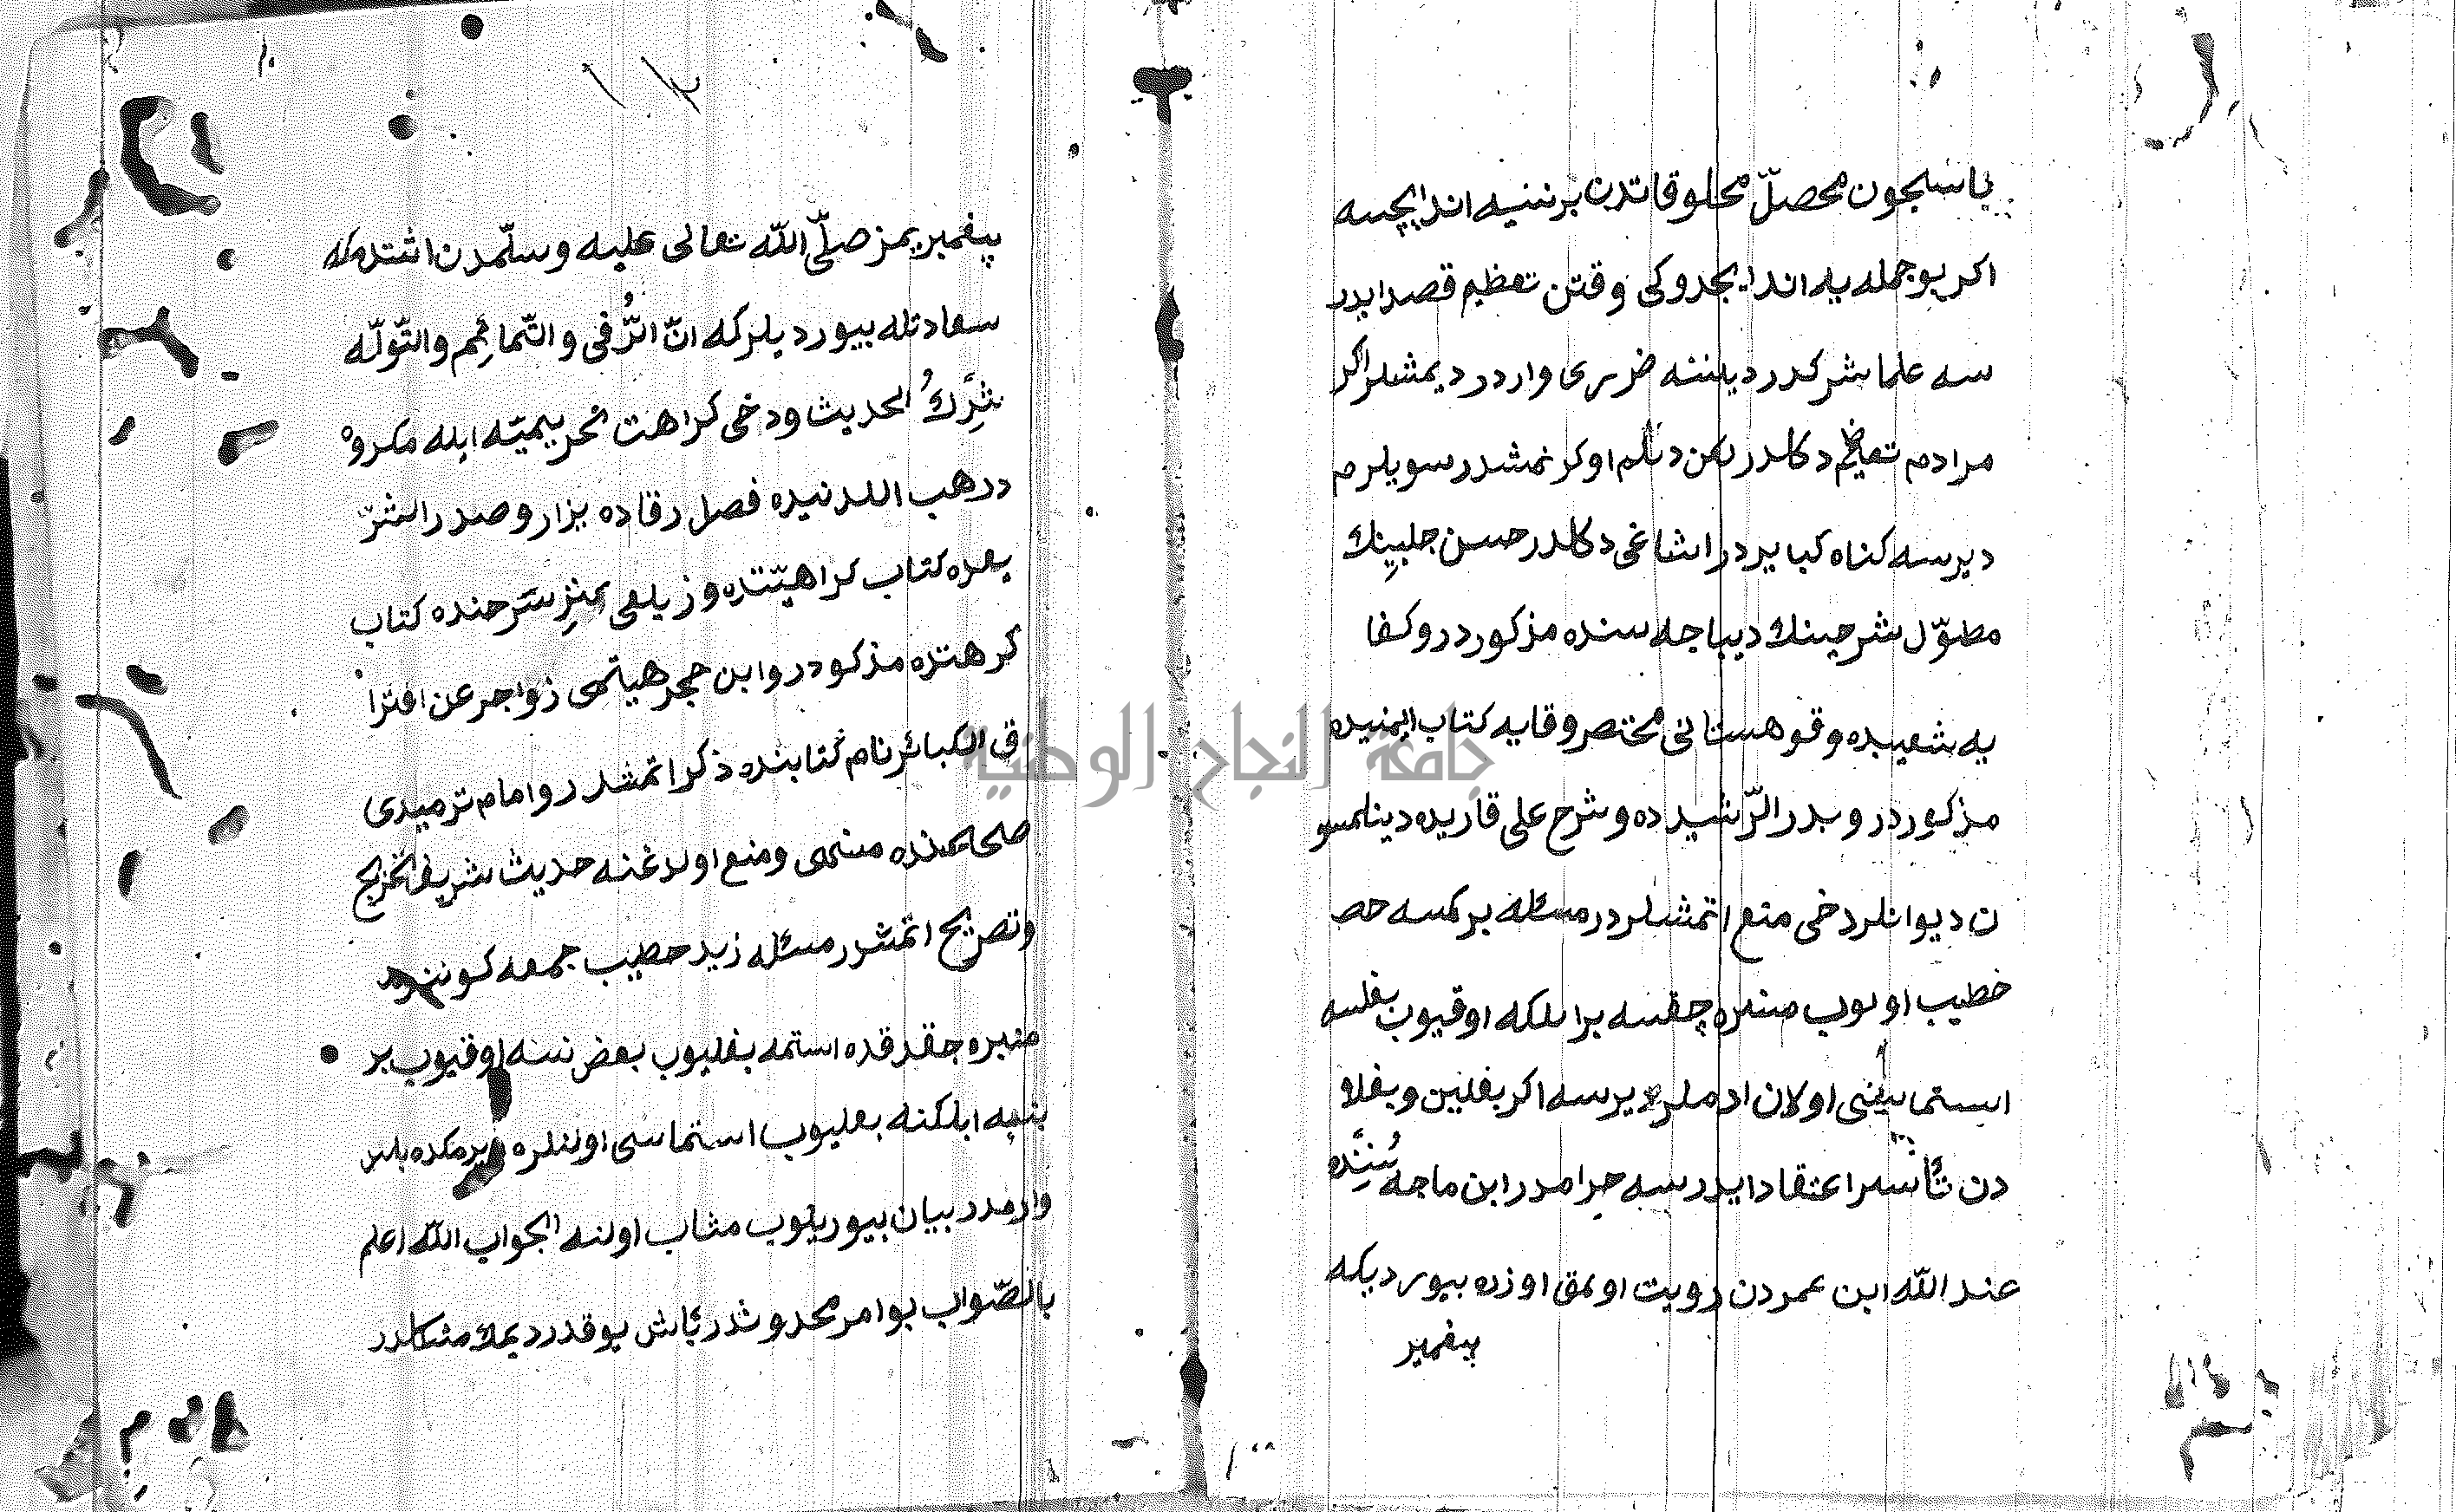 باسیجون محصلّ محلوقاتدن برنسیه اندایچسه
اکر بو جمله یه اندایجدوکی وقتن تعظیم قصدایدر
سه علما شرکدر دیلنسنه ضرری واردر دیمشلر اکر
مرادم تعظیم دکلدر لکن دیلم اوکرنمشدر سویلرم
دیرسه کناه کبایردر اشاغی دکلدر حسن جلبینك
مطوّل شرحینك دیباجه سنده مذکوردر وکفا
یه شعبیده وقوهستانی مختصر وقایه کتاب ایمنیده
مذکوردر و بدر الرّشید ده وشرح علی قاریده دینلمسو
ن دیوانلر دخی منع اتمشلردر مسئله بر کمسه حص
خطیب اولوب منبره چقسه برابلکه اوقیوب بغلسه
استماسینی اولان ادملره دیرسه اکر بغلنین وبغلا
دن تأسیر اعتقاد ایدرسه حرامدر ابن ماجه سُنَنِنده
عبد اللّه ابن عمردن رویت اولمق اوزره بیوردیکه
پیغمبر
١٢
پیغمبریمز صلّی اللّه تعالی علیه وسلّمدن اشتدمکه
سعادتله بیوردیلرکه انّ الرُّقی و التّمائِم والتّوَلّه
شِرْكُ الحدیث ودخی کراهت تحریمیّه ایله مکروه
در هب اللرنیده فصل رقاده بزار وصدر الشّر
یعده کتاب کراهیّتده و زیلعی کنزِ شرحنده کتاب
کرهتده مذکودر وابن حجر هیتمی زواجر عن اقترا
ف الکبائر نام کتابنده ذکر اتمشدر و امام ترمیدی
صحایحنده منهی ومنع اولدغنه حدیث شریف تخریج
وتصریح اتمشدر مسئله زید حطیب جمعه کوننده
منبره جقدقده استمه بغلیوب بعض نسنه اوقیوب بر
بنبه ابلکنه بعلیوب استماسی اولنلره ویرمکده بأس
وارمدر بیان بیوریلوب مثاب اولنه الجواب اللّه اعلم
بالصّواب بوامر محدوثدر بأس یوقدر دیمك مشکلدر
جامعة النجاح الوطنية